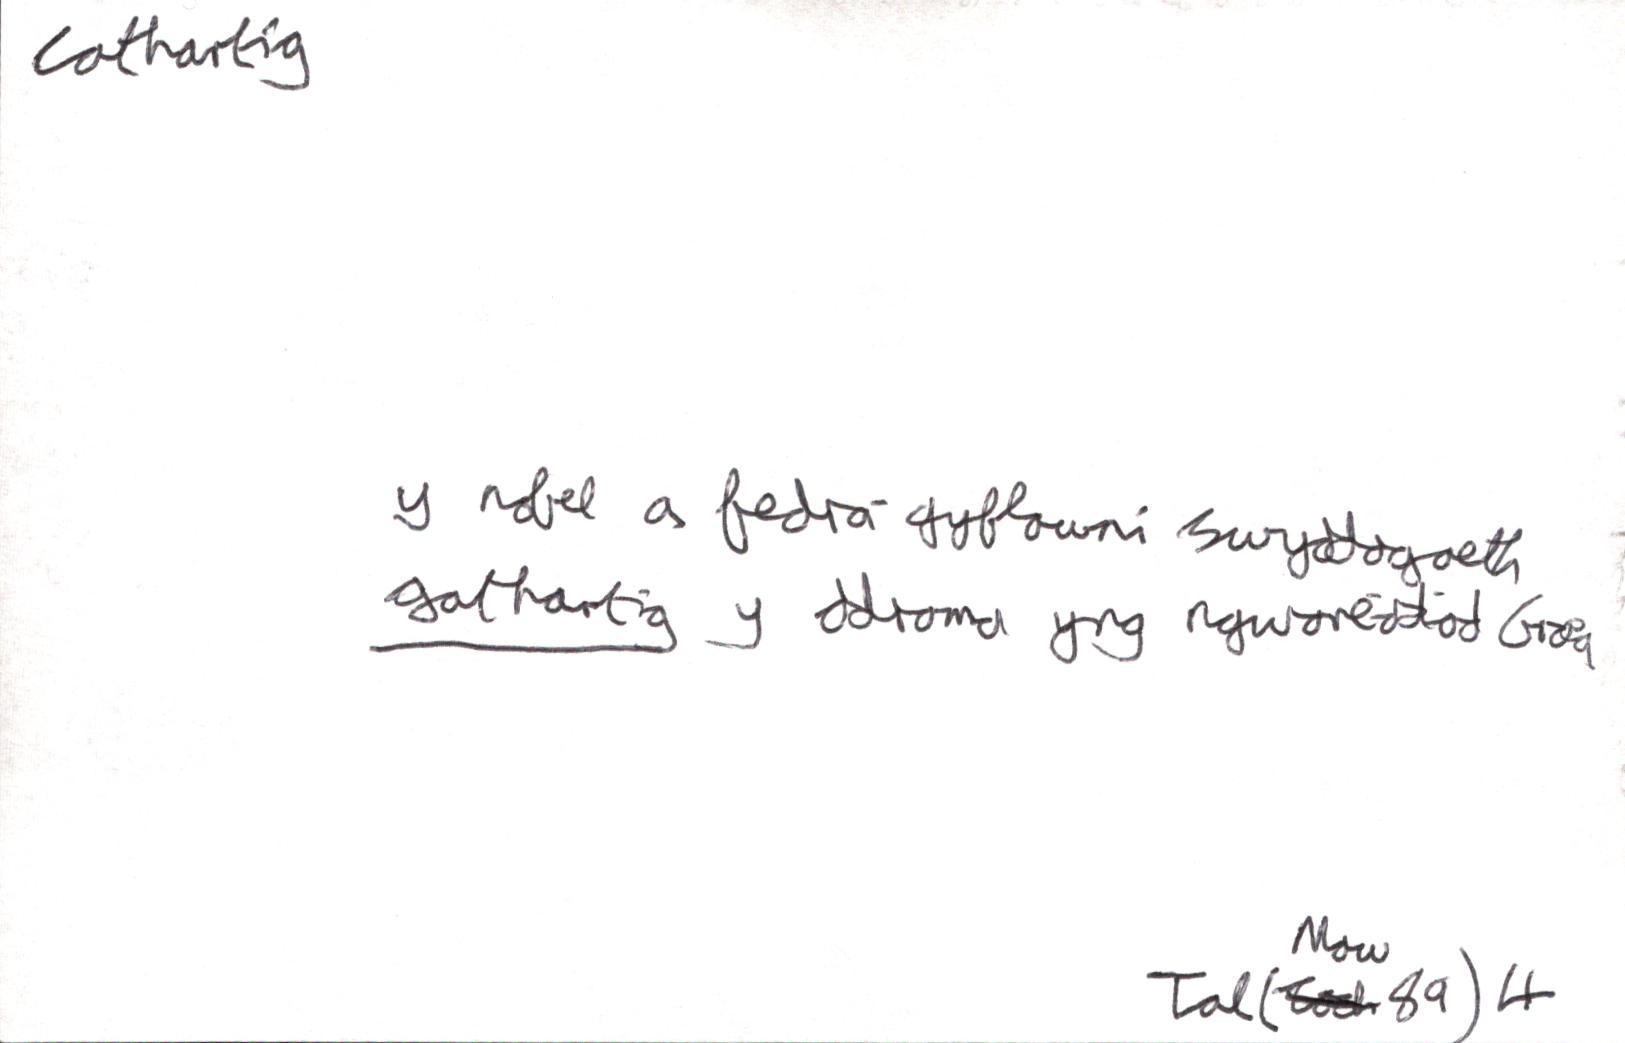 Cathartig
y nofel a fedrai gyflawni swyddogaeth
gathartig y ddrama yng ngwareiddiad Groeg
Maw
Tal( 89) 4